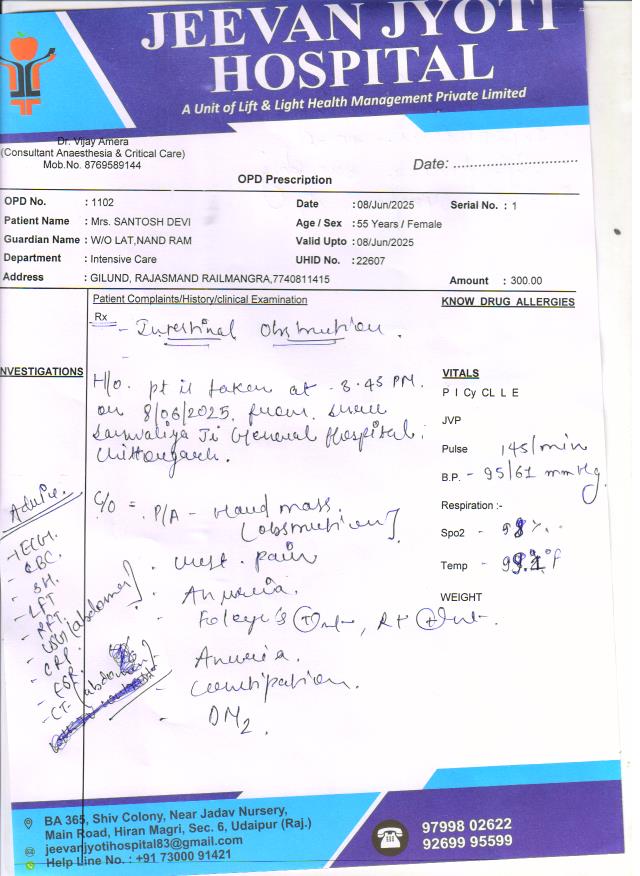 JEEVAN JYOTI
HOSPITAL
A Unit of Lift & Light Health Management Private Limited
Dr. Vijay Amera
(Consultant Anaesthesia & Critical Care)
Mob.No. 8769589144
Date: ..............................
OPD Prescription
OPD No. : 1102 Date : 08/Jun/2025 Serial No. : 1
Patient Name : Mrs. SANTOSH DEVI Age / Sex : 55 Years / Female
Guardian Name : W/O LAT,NAND RAM Valid Upto : 08/Jun/2025
Department : Intensive Care UHID No. : 22607
Address : GILUND, RAJASMAND RAILMANGRA,7740811415 Amount : 300.00
Patient Complaints/History/clinical Examination
KNOW DRUG ALLERGIES
Rx
- Intestinal Obstruction.
NVESTIGATIONS
H/o. pt is taken at 3:45 PM.
on 8/06/2025, from
Sanwaliya Ji General Hospital,
Chittorgarh.
C/O = . P/A - Hand mass
[obstruction]
. chest pain
. Anuria.
Foley's, RT
Anuria.
- Constipation.
. DM2.
Advice.
- ECG.
- CBC.
- LFT
- RFT
- USG (abdomen)
- CRP
- ESR
- CT (abdomen)
VITALS
P I Cy CL L E
JVP
Pulse 145/min
B.P. - 95/61 mmHg.
Respiration :-
Spo2 - 98%.
Temp -
WEIGHT
BA 365, Shiv Colony, Near Jadav Nursery,
Main Road, Hiran Magri, Sec. 6, Udaipur (Raj.)
jeevanjyotihospital83@gmail.com
Help Line No. : +91 73000 91421
97998 02622
92699 95599